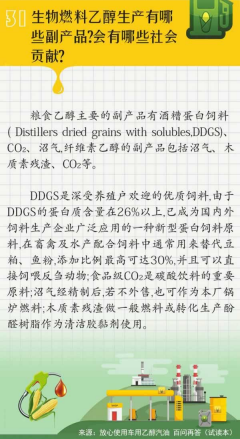 31 生物燃料乙醇生产有哪
些副产品?会有哪些社会
贡献?
粮食乙醇主要的副产品有酒糟蛋白饲料
( Distillers dried grains with solubles,DDGS)、
CO₂、沼气,纤维素乙醇的副产品包括沼气、木
质素残渣、CO₂等。
DDGS是深受养殖户欢迎的优质饲料,由于
DDGS的蛋白质含量在26%以上,已成为国内外
饲料生产企业广泛应用的一种新型蛋白饲料原
料,在畜禽及水产配合饲料中通常用来替代豆
粕、鱼粉,添加比例最高可达30%,并且可以直
接饲喂反刍动物;食品级CO₂是碳酸饮料的重要
原料;沼气经精制后,若不外售,也可作为本厂锅
炉燃料;木质素残渣做一般燃料或转化生产酚
醛树脂作为清洁胶黏剂使用。
来源:放心使用车用乙醇汽油 百问再答(试读本)